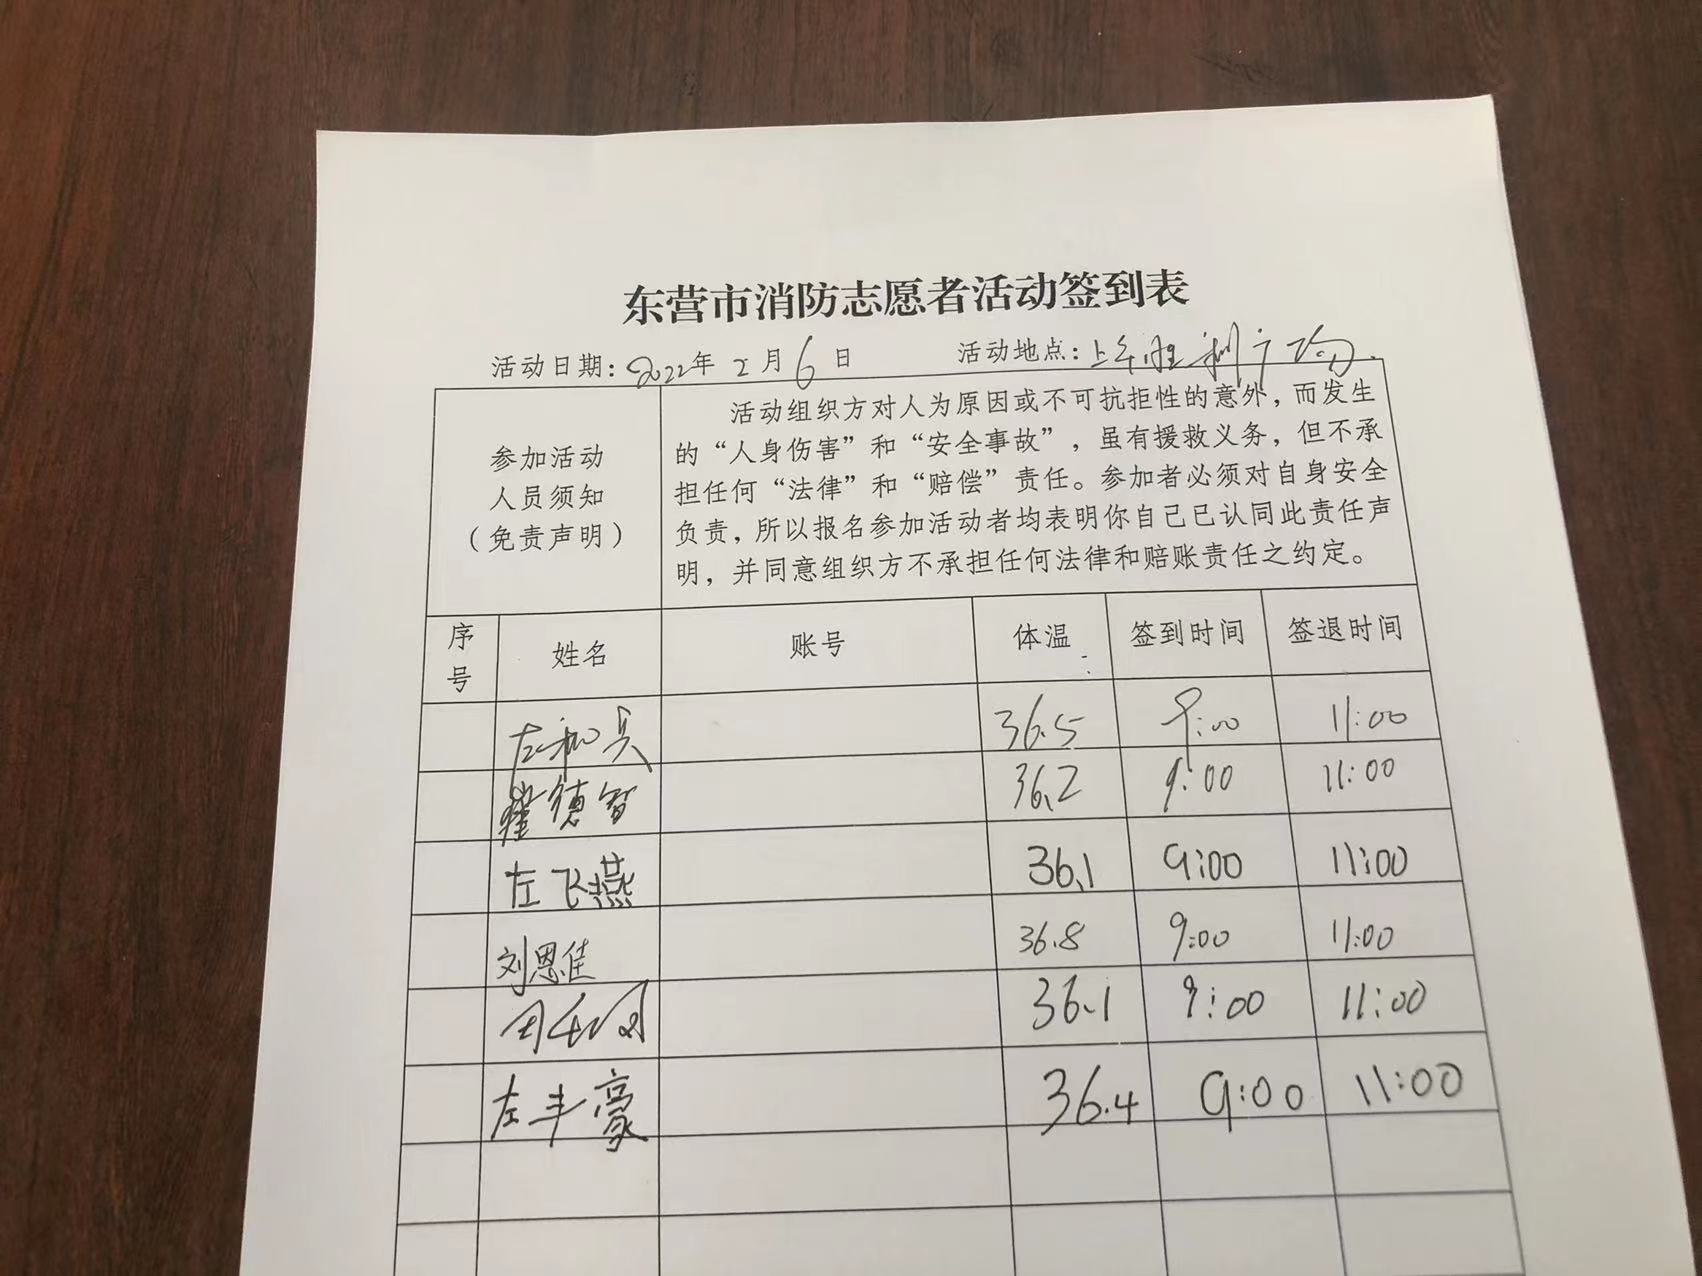 东营市消防志愿者活动签到表
活动日期：2022年2月6日 活动地点：胜利广场
参加活动
人员须知
（免责声明）
活动组织方对人为原因或不可抗拒性的意外，而发生
的“人身伤害”和“安全事故”，虽有援救义务，但不承
担任何“法律”和“赔偿”责任。参加者必须对自身安全
负责，所以报名参加活动者均表明你自己已认同此责任声
明，并同意组织方不承担任何法律和赔账责任之约定。
序号 姓名 账号 体温 签到时间 签退时间
36.5 9:00 11:00
翟德智 36.2 9:00 11:00
左飞燕 36.1 9:00 11:00
刘恩佳 36.8 9:00 11:00
36.1 9:00 11:00
左丰豪 36.4 9:00 11:00